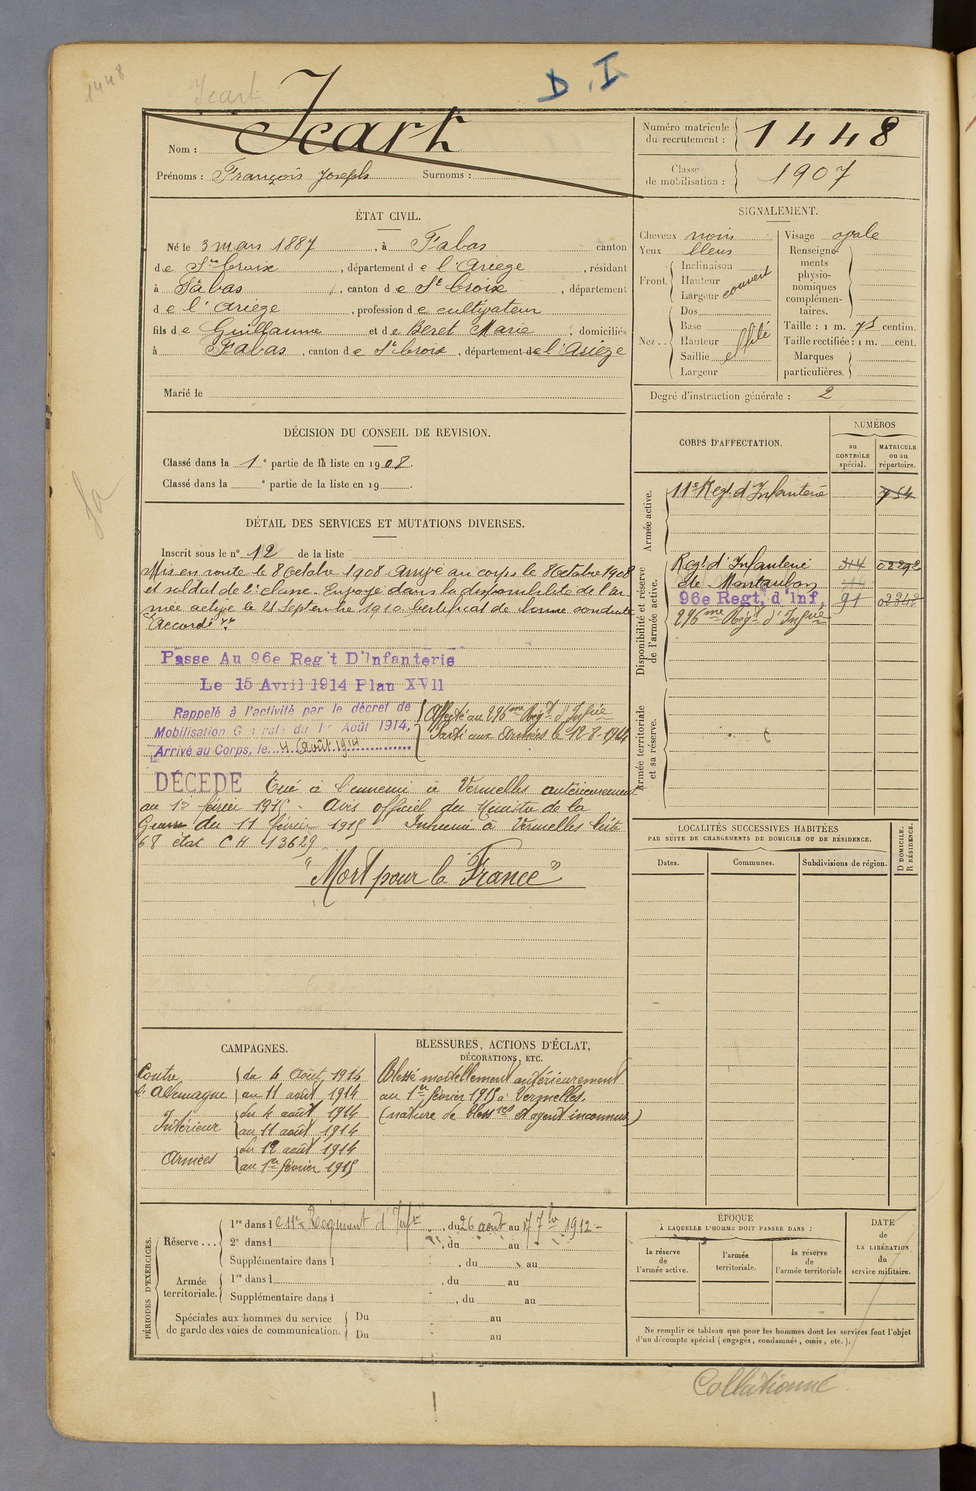 1448
Icart
D.I
Nom : Icart
Prénoms : François Joseph Surnoms :
Numéro matricule du recrutement : 1448
Classe de mobilisation : 1907
ÉTAT CIVIL.
Né le 3 mars 1887, à Fabas canton
de Ste Croix, département de l'Ariège, résidant
à Fabas, canton de Ste Croix, département
de l'Ariège, profession de cultivateur
fils de Guillaume et de Beret Marie, domiciliés
à Fabas, canton de Ste Croix, département de l'Ariège
Marié le
SIGNALEMENT.
Cheveux noirs
Yeux bleus
Front. Inclinaison Hauteur Largeur couvert
Nez.. Dos Base Hauteur Saillie Largeur effilé
Visage ovale
Renseignements physionomiques complémentaires.
Taille : 1 m. 75 centim.
Taille rectifiée : 1 m. cent.
Marques particulières.
Degré d'instruction générale : 2
DÉCISION DU CONSEIL DE REVISION.
Classé dans la 1e partie de la liste en 1908.
Classé dans la e partie de la liste en 19 .
DÉTAIL DES SERVICES ET MUTATIONS DIVERSES.
Inscrit sous le n° 12 de la liste
Mis en route le 8 Octobre 1908. Arrivé au corps le 8 Octobre 1908
et soldat de 2e classe. Envoyé dans la disponibilité de l'ar
mée active le 25 Septembre 1910. Certificat de bonne conduite
Accordé
Passe Au 96e Reg't D'Infanterie
Le 15 Avril 1914 Plan XVII
Rappelé à l'activité par le décret de
Mobilisation Générale du 1er Août 1914,
Arrivé au Corps, le 4 Août 1914
Affecté au 296me Régt d'Infie
Parti aux Armées le 12-8-1914
DÉCÉDÉ Tué à l'ennemi à Vermelles antérieurement
au 1er février 1915 - Avis officiel du Ministre de la
Guerre du 11 février 1915 - Inhumé à Vermelles liste
68 état CH 43629
"Mort pour la France"
CORPS D'AFFECTATION.
NUMÉROS
au CONTRÔLE spécial.
MATRICULE ou au répertoire.
Armée active.
11e Regt d'Infanterie 754
Disponibilité et réserve de l'armée active.
Regt d'Infanterie 314 02292
de Montauban
96e Regt, d'Inf, 91 02342
296me Régt d'Infie
Armée territoriale et sa réserve.
LOCALITÉS SUCCESSIVES HABITÉES
PAR SUITE DE CHANGEMENTS DE DOMICILE OU DE RÉSIDENCE.
Dates. Communes. Subdivisions de région. D DOMICILE. R RÉSIDENCE.
CAMPAGNES.
Contre l'Allemagne du 4 Août 1914
au 11 août 1914
Intérieur du 4 août 1914
au 11 août 1914
Armées du 12 août 1914
au 1er février 1915
BLESSURES, ACTIONS D'ÉCLAT,
DÉCORATIONS, ETC.
Blessé mortellement antérieurement
au 1er février 1915 à Vermelles.
(nature de blessres et agent inconnus)
PÉRIODES D'EXERCICES.
Réserve ... 1re dans le 11e Régiment d'Infie, du 26 août au 17 7bre 1912-
2e dans l , du au
Supplémentaire dans l , du au
Armée territoriale. 1re dans l , du au
Supplémentaire dans l , du au
Spéciales aux hommes du service de garde des voies de communication. Du au
Du au
ÉPOQUE
À LAQUELLE L'HOMME DOIT PASSER DANS :
la réserve de l'armée active.
l'armée territoriale.
la réserve de l'armée territoriale
DATE de LA LIBÉRATION du service militaire.
Ne remplir ce tableau que pour les hommes dont les services font l'objet
d'un décompte spécial (engagés, condamnés, omis, etc.).
Collationné